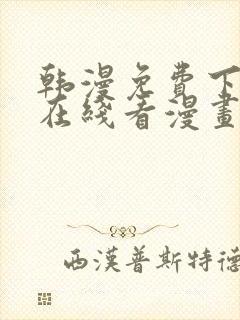 韩漫免費下
在线看漫畫
西漢普斯特德